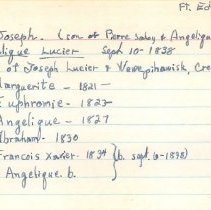 Ft. Ed
Joseph. (son of Pierre & Angeliqu
lique Lucier Sept 10 - 1838
of Joseph Lucier & Cre
Marguerite - 1821 -
Euphromie - 1823 -
Angelique - 1827
Abraham - 1830
Francois Xavier - 1834 (b. sept. 10 - 1838)
Angelique. b.